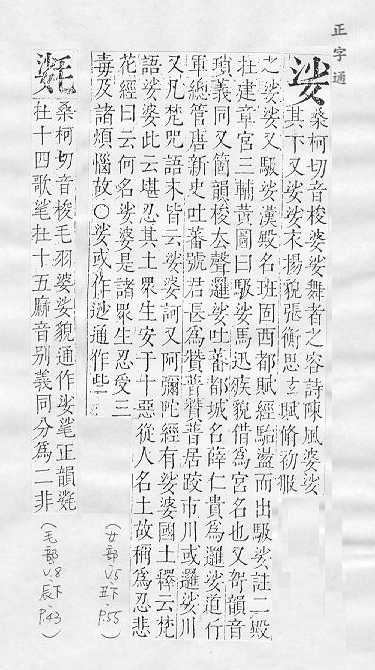 正字通
娑桑柯切音梭婆娑舞者之容詩陳風婆娑
其下又娑娑衣揚貌張衡思玄賦脩初服
之娑娑又馺娑漢殿名班固西都賦經駘盪而出馺娑註二殿
在建章宮三輔黃圖曰馺娑馬迅疾貌借為宮名也又哿韻音
瑣義同又箇韻梭去聲邏娑吐蕃都城名薛仁貴為邏娑道行
軍總管唐新史吐蕃號君長為贊普贊普居跤市川或邏娑川
又凡梵咒語末皆云娑婆訶又阿彌陀經有娑婆國土釋云梵
語娑婆此云堪忍其土眾生安于十惡從人名土故稱為忍悲
花經曰云何名娑婆是諸眾生忍受三
毒及諸煩惱故○娑或作逤通作些
(女部 V.5 丑下 P.55)
桑柯切音梭毛羽婆娑貌通作娑毟正韻
在十四歌毟在十五麻音別義同分為二非
(毛部 V.8 辰下 P.43)